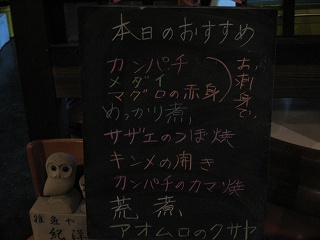 本日のおすすめ
カンパチ
メダイ
マグロの赤身
お刺身で。
めっかり煮
サザエのつぼ焼
キンメの開き
カンパチのカマ焼
荒煮
アオムロのクサヤ
雑魚や
紀洋